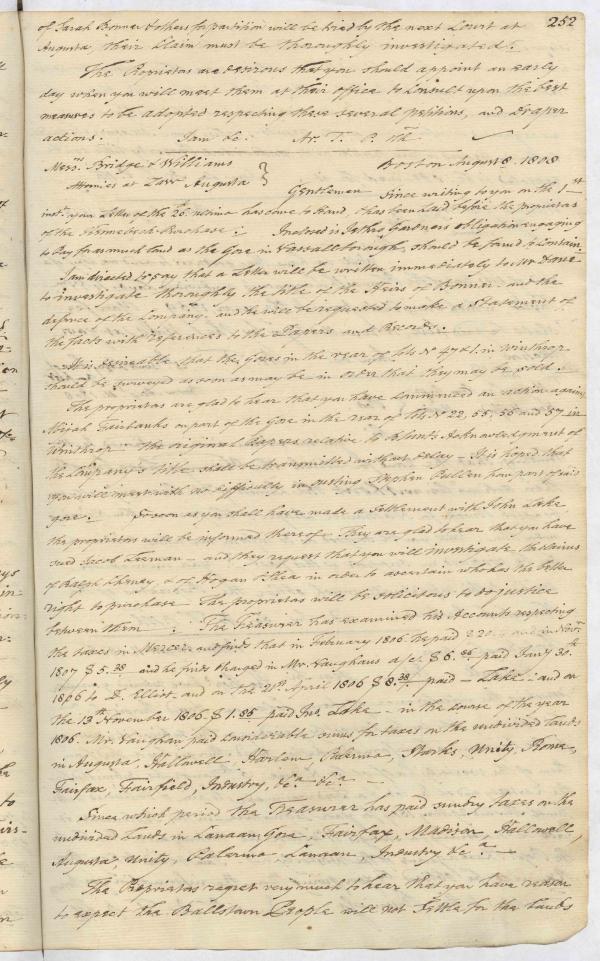 252
of Sarah Bonner & others for partition will be tried by the next Court at
Augusta, their Claim must be thoroughly investigated.
The Proprietors are desirous that you should appoint an early
day when you will meet them at their office to Consult upon the best
measures to be adopted respecting these several petitions, and Draper
actions. I am &c. Ar. T.
Messrs. Bridge & Williams Boston August 8. 1808
Attornies at Law Augusta
Gentlemen Since writing to you on the 1st
inst. your Letter of the 26 Ultimo has come to Hand, & has been Laid before the proprietors
of the Kennebeck Purchase. Inclosed is Jethro Gardners obligation engaging
to Pay for as much land as the Gore in Vassalborough, should be found to Contain
I am directed to say that a Letter will be written immediately to Mr.
to investigate thoroughly the title of the Heirs of Bonner and the
defence of the Company. and he will be requested to make a Statement of
the facts with references to the Papers and Records.
It is desireable that the Gores in the rear of lots No. 47 & 1. in Winthrop
should be surveyed as soon as may be in order that they may be sold.
The proprietors are glad to hear that you have commenced an action against
Elijah Fairbanks on part of the Gore in the rear of lots No. 22, 55, 56 and 57 in
Winthrop the original papers relative to Acknowledgment of
the Company's title shall be transmitted without delay - It is hoped that
you will meet with no difficulty in ousting Stephen Pullen from part of said
gore. So soon as you shall have made a Settlement with John Lake
the proprietors will be informed thereof. They are glad to hear that you have
sued Jacob Leeman - and they request that you will investigate the claims
of Ralph Cheney, & of Hogan & Shea in order to ascertain who has the better
right to purchase The proprietors will be solicitous to do justice
between them. The Treasurer has examined his Accounts respecting
the taxes in Mercer, and finds that in February 1806 he paid 2.20 and in Novr.
1807 $ 5.38 and he finds Charged in Mr. Vaughans a/c $ 6.86 paid Jany 30th
1806 to D. Elliot. and on the 21st April 1806 $ 8.38 paid - Lake - and on
the 13th November 1806 $ 1.86 paid Jno. Lake - in the course of the year
1806. Mr. Vaughan paid considerable sums for taxes on the undivided Lands
in Augusta, Hallowell, Harlem, Palermo, Starks, Unity, Rome,
Fairfax, Fairfield, Industry, &ca. &ca. -
Since which period the Treasurer has paid sundry taxes on the
undivided Lands in Canaan Gore, Fairfax, Madison, Hallowell,
Augusta, Unity, Palermo, Canaan, Industry &ca. -
The Proprietors regret very much to hear that you have reason
to expect the Ballstown People will not Settle for the Lands